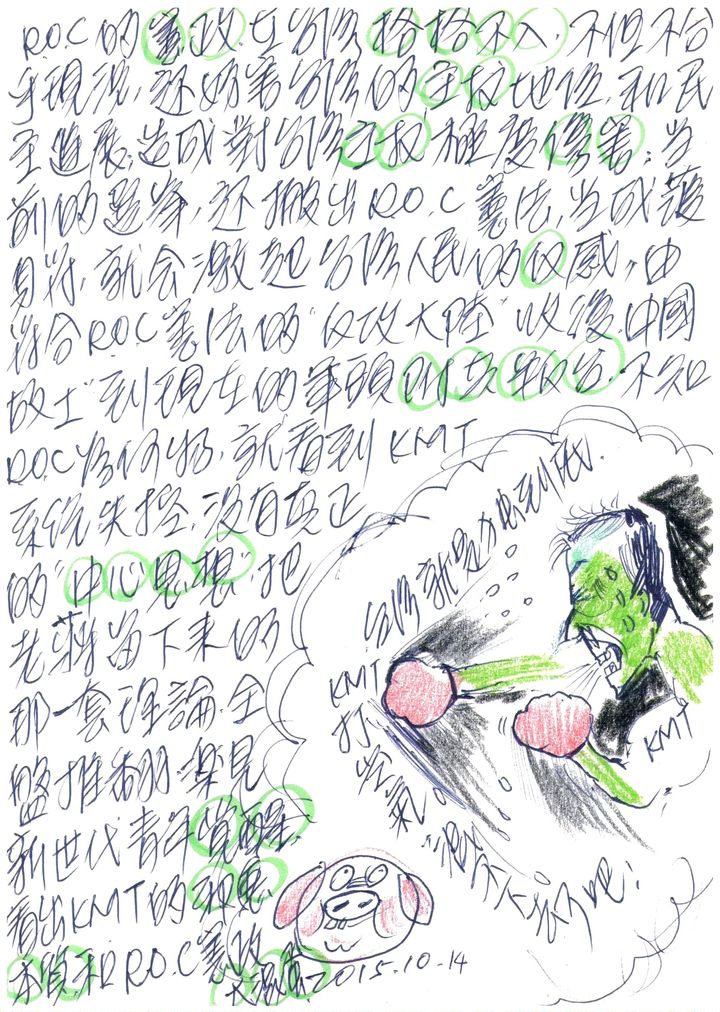 R.O.C的憲政,在台灣格格不入,不但不合
乎現況,还妨害台灣的主权地位,和民
主進展,造成對台灣主权極度傷害,当
前的選舉,还搬出R.O.C憲法,当成護
身符,就会激起台灣人民的反感,由
符合R.O.C憲法的"反攻大陸"收復中國
故土"到現在的車頭 不知
R.O.C為何物,就看到KMT
系統失控,沒有真正
的"中心思想"把
老蔣留下来的
那一套理論,全
盤推翻,樂見
新世代青年覺醒,
看出KMT的邪惡
本質和R.O.C憲政
2015.10-14
台灣就是 到我
KMT
打
空氣
KMT